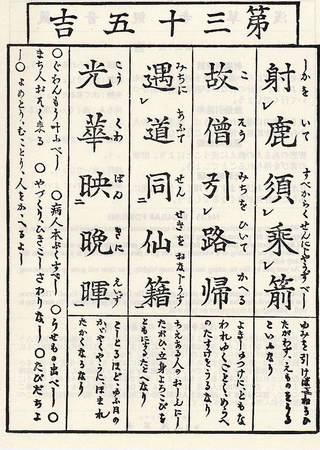 第三十五吉
しかを いて すべからくせんにじやうずべし
射鹿須乗箭
ゆみを引けば ねらひ
たがわず、えものをうる
といふなり
こ そう みちをひいて かへる
故僧引路帰
よきしゆつけに、ともな
われゆくごとく、めうへ
のたすけをうるなり
みちに あふて せん せきをおなじうす
遇道同仙籍
ちゑある人のおしえにし
たがひ、立身よろこびを
ともにするたとへなり
こう くわ ばんきに えいず
光華映晩暉
としとるほど、ゆふ日の
かゞやくやうに、ほまれ
たかくなるなり
○ぐわんもう叶ふべし ○病人本ぷくすべし ○うせもの出べし ○
まち人おそく来る ○やづくりひきこしさわりなし ○たびだちよ
し ○よめとり、むことり、人をかゝへるよし